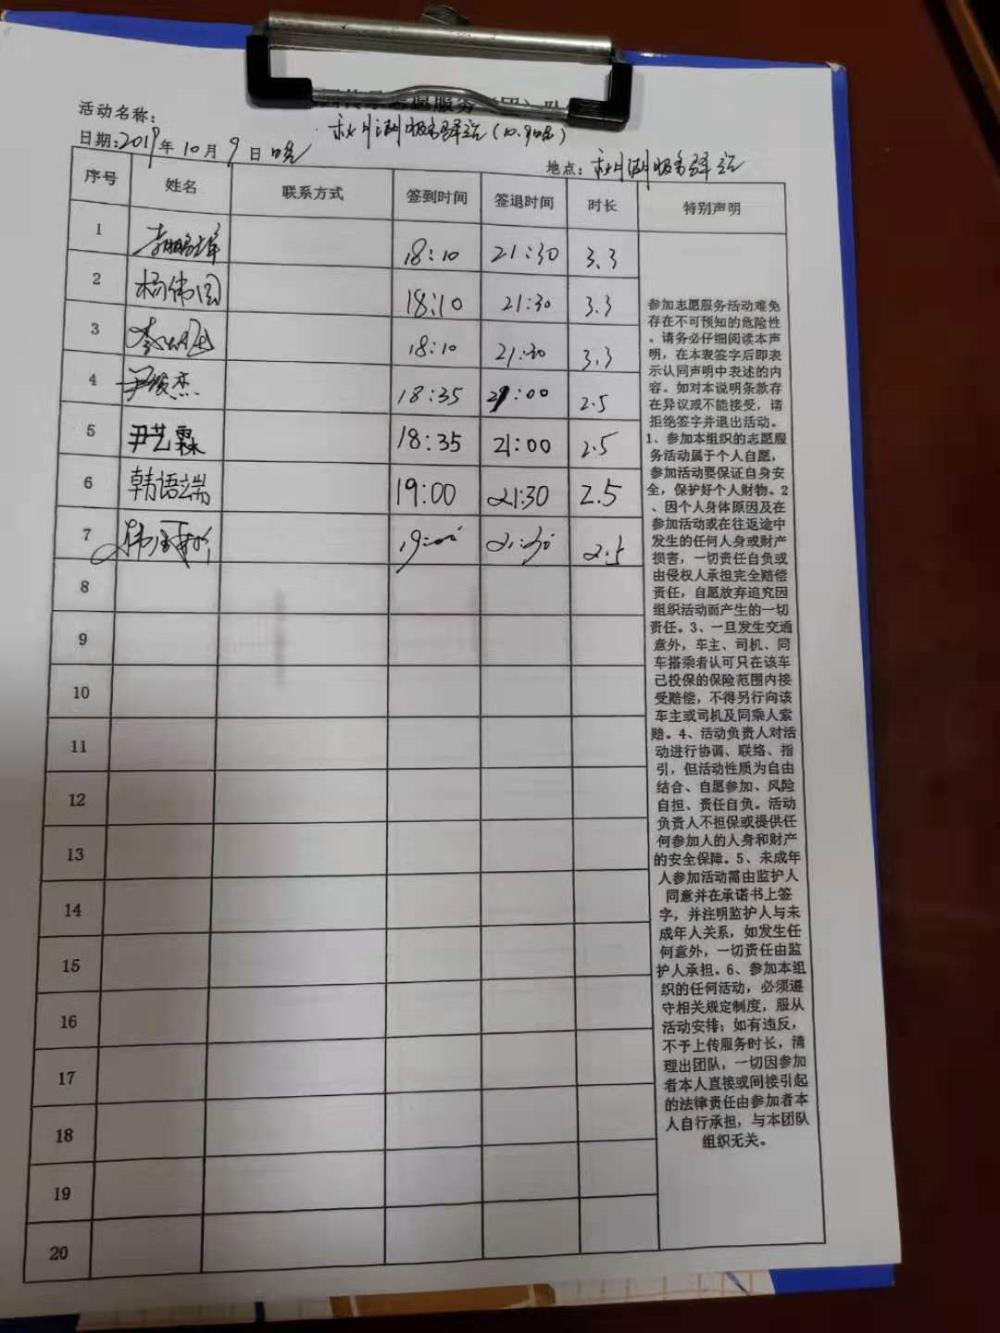 活动名称：
服务驿站(10.9晚)
日期:2019年10月9日 晚
地点： 服务驿站
序号 姓名 联系方式 签到时间 签退时间 时长 特别声明
1 18:10 21:30 3.3
2 杨伟国 18:10 21:30 3.3
3 18:10 21:30 3.3
4 尹俊杰 18:35 21:00 2.5
5 尹艺霖 18:35 21:00 2.5
6 韩语端 19:00 21:30 2.5
7 19:00 21:30 2.5
8
9
10
11
12
13
14
15
16
17
18
19
20
参加志愿服务活动难免
存在不可预知的危险性
。请务必仔细阅读本声
明，在本表签字后即表
示认同声明中表述的内
容。如对本说明条款存
在异议或不能接受，请
拒绝签字并退出活动。
1、参加本组织的志愿服
务活动属于个人自愿，
参加活动要保证自身安
全，保护好个人财物。2
、因个人身体原因及在
参加活动或在往返途中
发生的任何人身或财产
损害，一切责任自负或
由侵权人承担完全赔偿
责任，自愿放弃追究因
组织活动而产生的一切
责任。3、一旦发生交通
意外，车主、司机、同
车搭乘者认可只在该车
己投保的保险范围内接
受赔偿，不得另行向该
车主或司机及同乘人索
赔。4、活动负责人对活
动进行协调、联络、指
引，但活动性质为自由
结合、自愿参加、风险
自担、责任自负。活动
负责人不担保或提供任
何参加人的人身和财产
的安全保障。5、未成年
人参加活动需由监护人
同意并在承诺书上签
字，并注明监护人与未
成年人关系，如发生任
何意外，一切责任由监
护人承担。6、参加本组
织的任何活动，必须遵
守相关规定制度，服从
活动安排；如有违反，
不予上传服务时长，清
理出团队，一切因参加
者本人直接或间接引起
的法律责任由参加者本
人自行承担，与本团队
组织无关。